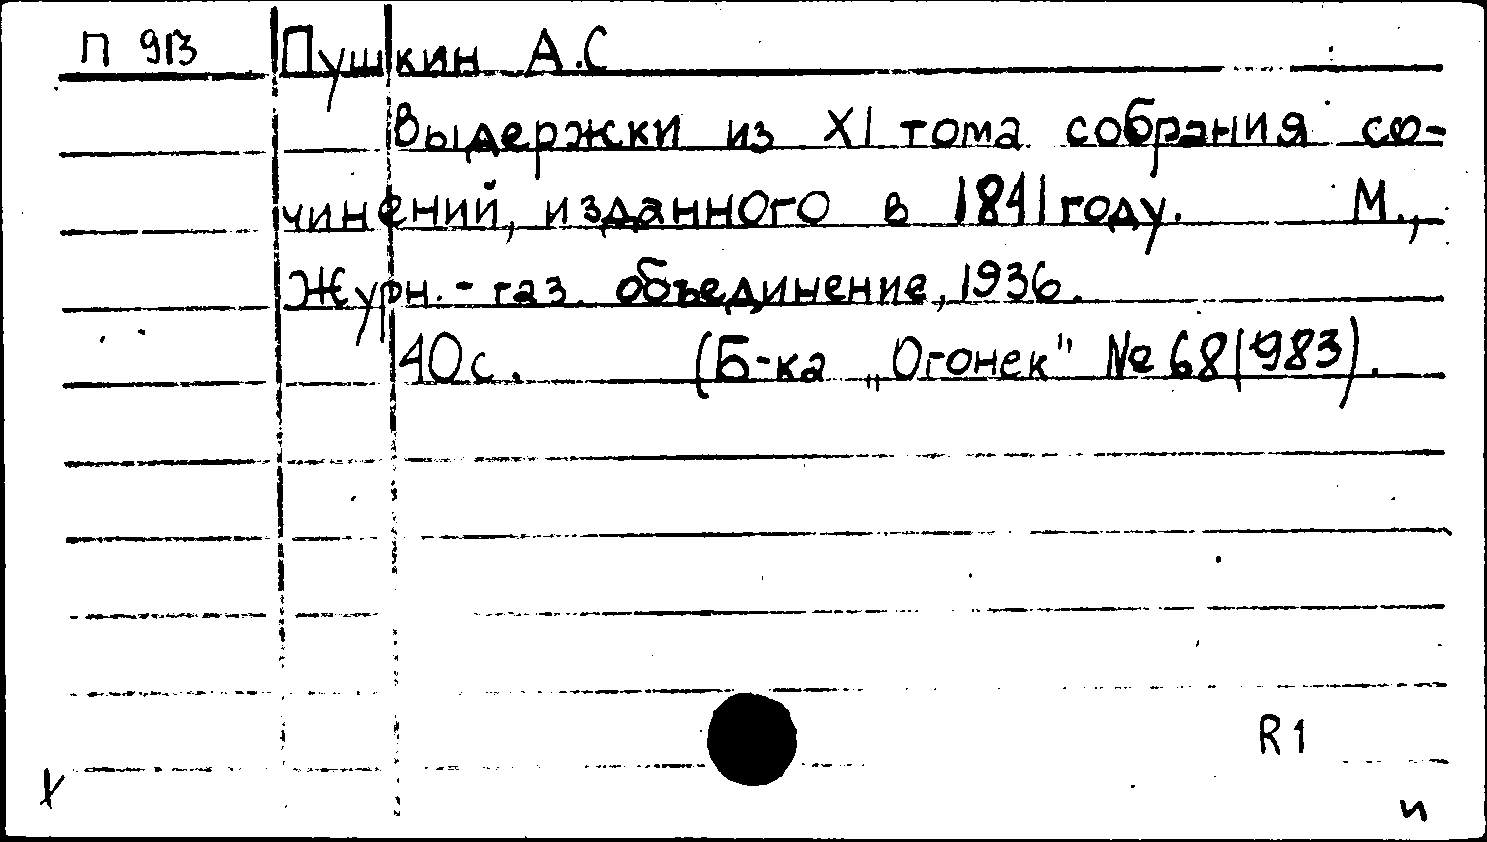 П 913 Пушкин А.С
Выдержки из XI тома собрания со-
чинений, изданного в 1841 году. М.,
Журн.-газ. объединение, 1936.
40с. (Б-ка „Огонек" № 68(983).
R1
и